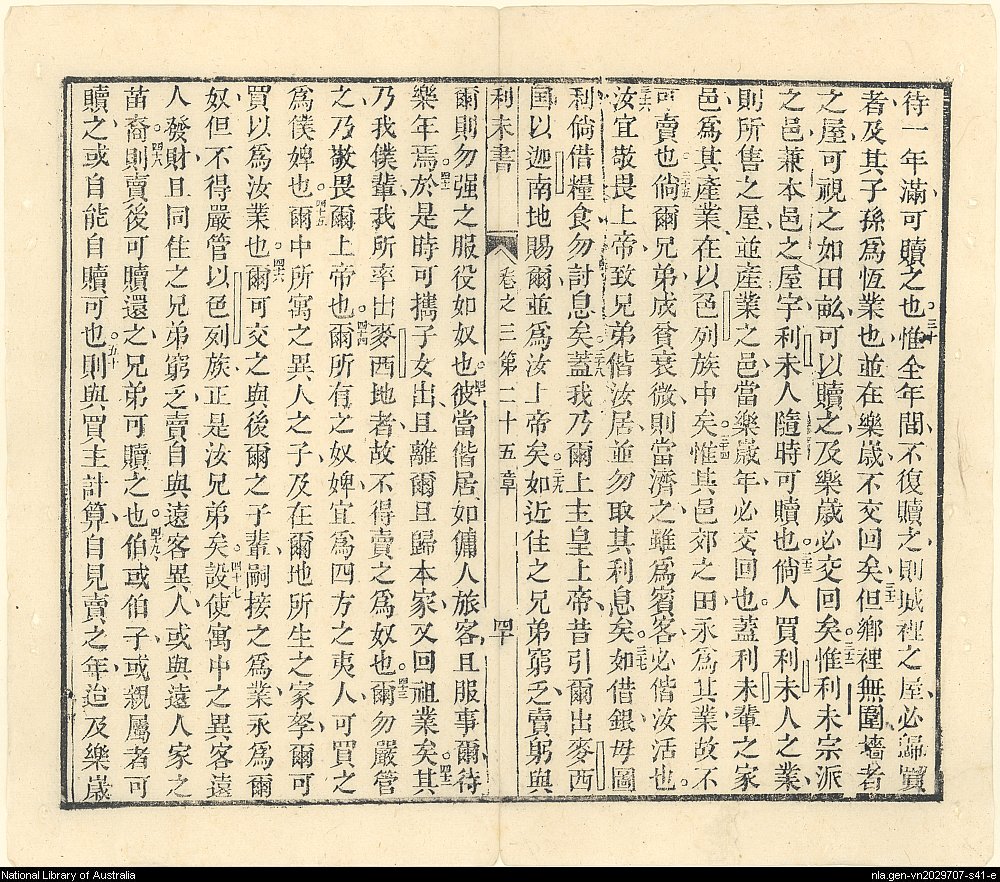 待一年滿可贖之也。三十惟全年間不復贖之則城裡之屋必歸買
者及其子孫為恆業也並在樂歲不交回矣三十一但鄉裡無圍墻者
之屋可視之如田畝可以贖之及樂歲必交回矣。三十二惟利未宗派
之邑兼本邑之屋宇利未人隨時可贖也。三十三倘人買利未人之業
則所售之屋並產業之邑當樂歲年必交回也。蓋利未輩之家
邑為其產業在以色列族中矣。三十四惟其邑郊之田永為其業故不
可賣也。三十五倘爾兄弟成貧衰微則當濟之雖為賓客必偕汝活也。
三十六汝宜敬畏上帝致兄弟偕汝居並勿取其利息矣。三十七如借銀毋圖
利倘借糧食勿討息矣。三十八蓋我乃爾上主皇上帝昔引爾出麥西
国以迦南地賜爾並為汝上帝矣。三十九如近住之兄弟窮乏賣躬與
利未書 卷之三第二十五章 四十
爾則勿强之服役如奴也。四十彼當偕居如傭人旅客且服事爾待
樂年焉。四十一於是時可攜子女出且離爾且歸本家又回祖業矣。四十二其
乃我僕輩我所率出麥西地者故不得賣之為奴也。四十三爾勿嚴管
之乃敬畏爾上帝也。四十四爾所有之奴婢宜為四方之夷人可買之
為僕婢也。四十五爾中所寓之異人之子及在爾地所生之家孥爾可
買以為汝業也。四十六爾可交之與後爾之子輩嗣接之為業永為爾
奴但不得嚴管以色列族正是汝兄弟矣。四十七設使寓中之異客遠
人發財且同住之兄弟窮乏賣自與遠客異人或與遠人家之
苗裔。四十八則賣後可贖還之兄弟可贖之也。四十九伯或伯子或親屬者可
贖之或自能自贖可也。五十則與買主計算自見賣之年迨及樂歲